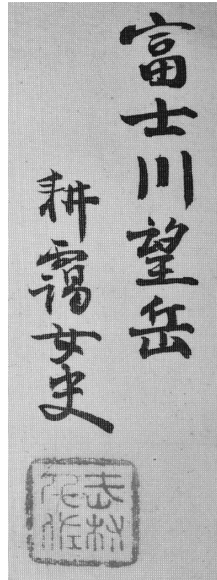 富士川望岳
耕靄女史